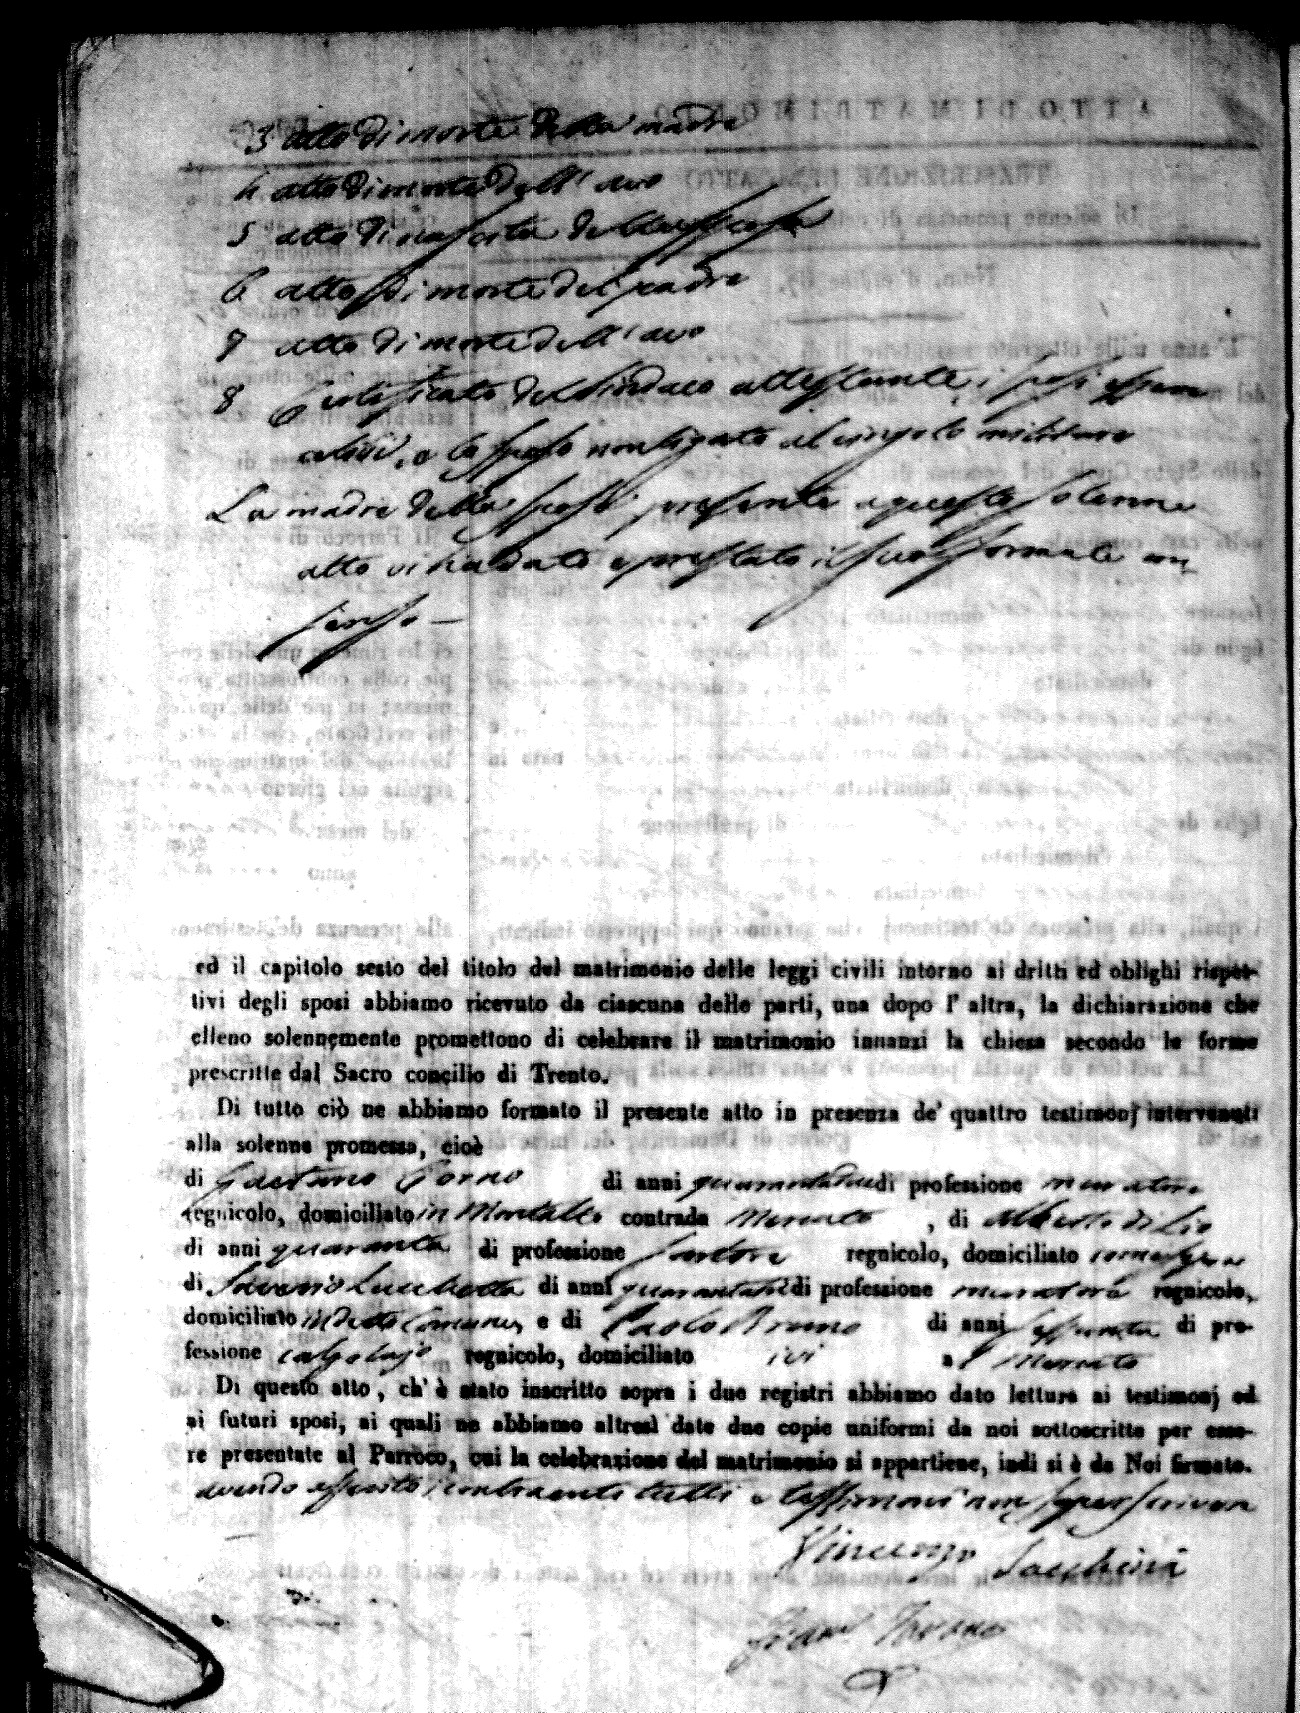 3 atto di morte della madre
4 atto di morte dell'avo
5 atto di nascita della sposa
6 atto di morte del padre
7 atto di morte dell'avo
8 Certificato del Sindaco attestante i sposi essere
celibi, e lo sposo non ligato al cingolo militare
La madre della sposa presente a questo solenne
atto vi ha dato e prestato il suo formale con
senso —
ed il capitolo sesto del titolo del matrimonio delle leggi civili intorno ai dritti ed oblighi rispet-
tivi degli sposi abbiamo ricevuto da ciascuna delle parti, una dopo l'altra, la dichiarazione che
elleno solennemente promettono di celebrare il matrimonio innanzi la chiesa secondo le forme
prescritte dal Sacro concilio di Trento.
Di tutto ciò ne abbiamo formato il presente atto in presenza de' quattro testimonj intervenuti
alla solenne promessa, cioè
di Gaetano di anni quarantadue di professione muratore
regnicolo, domiciliato in Montalto contrada Mercato , di Alberto di Lio
di anni quaranta di professione Sartore regnicolo, domiciliato come sopra
di Saverio Lucchetta di anni di professione muratore regnicolo,
domiciliato in detto Comune, e di Paolo Bruno di anni sessanta di pro-
fessione calzolajo regnicolo, domiciliato ivi a Mercato
Di questo atto, ch'è stato inscritto sopra i due registri abbiamo dato lettura ai testimonj ed
ai futuri sposi, ai quali ne abbiamo altresì date due copie uniformi da noi sottoscritte per esse-
re presentate al Parroco, cui la celebrazione del matrimonio si appartiene, indi si è da Noi firmato.
avendo asserito i contraenti tutti e testimoni non saper scrivere
Vincenzo Sacchini